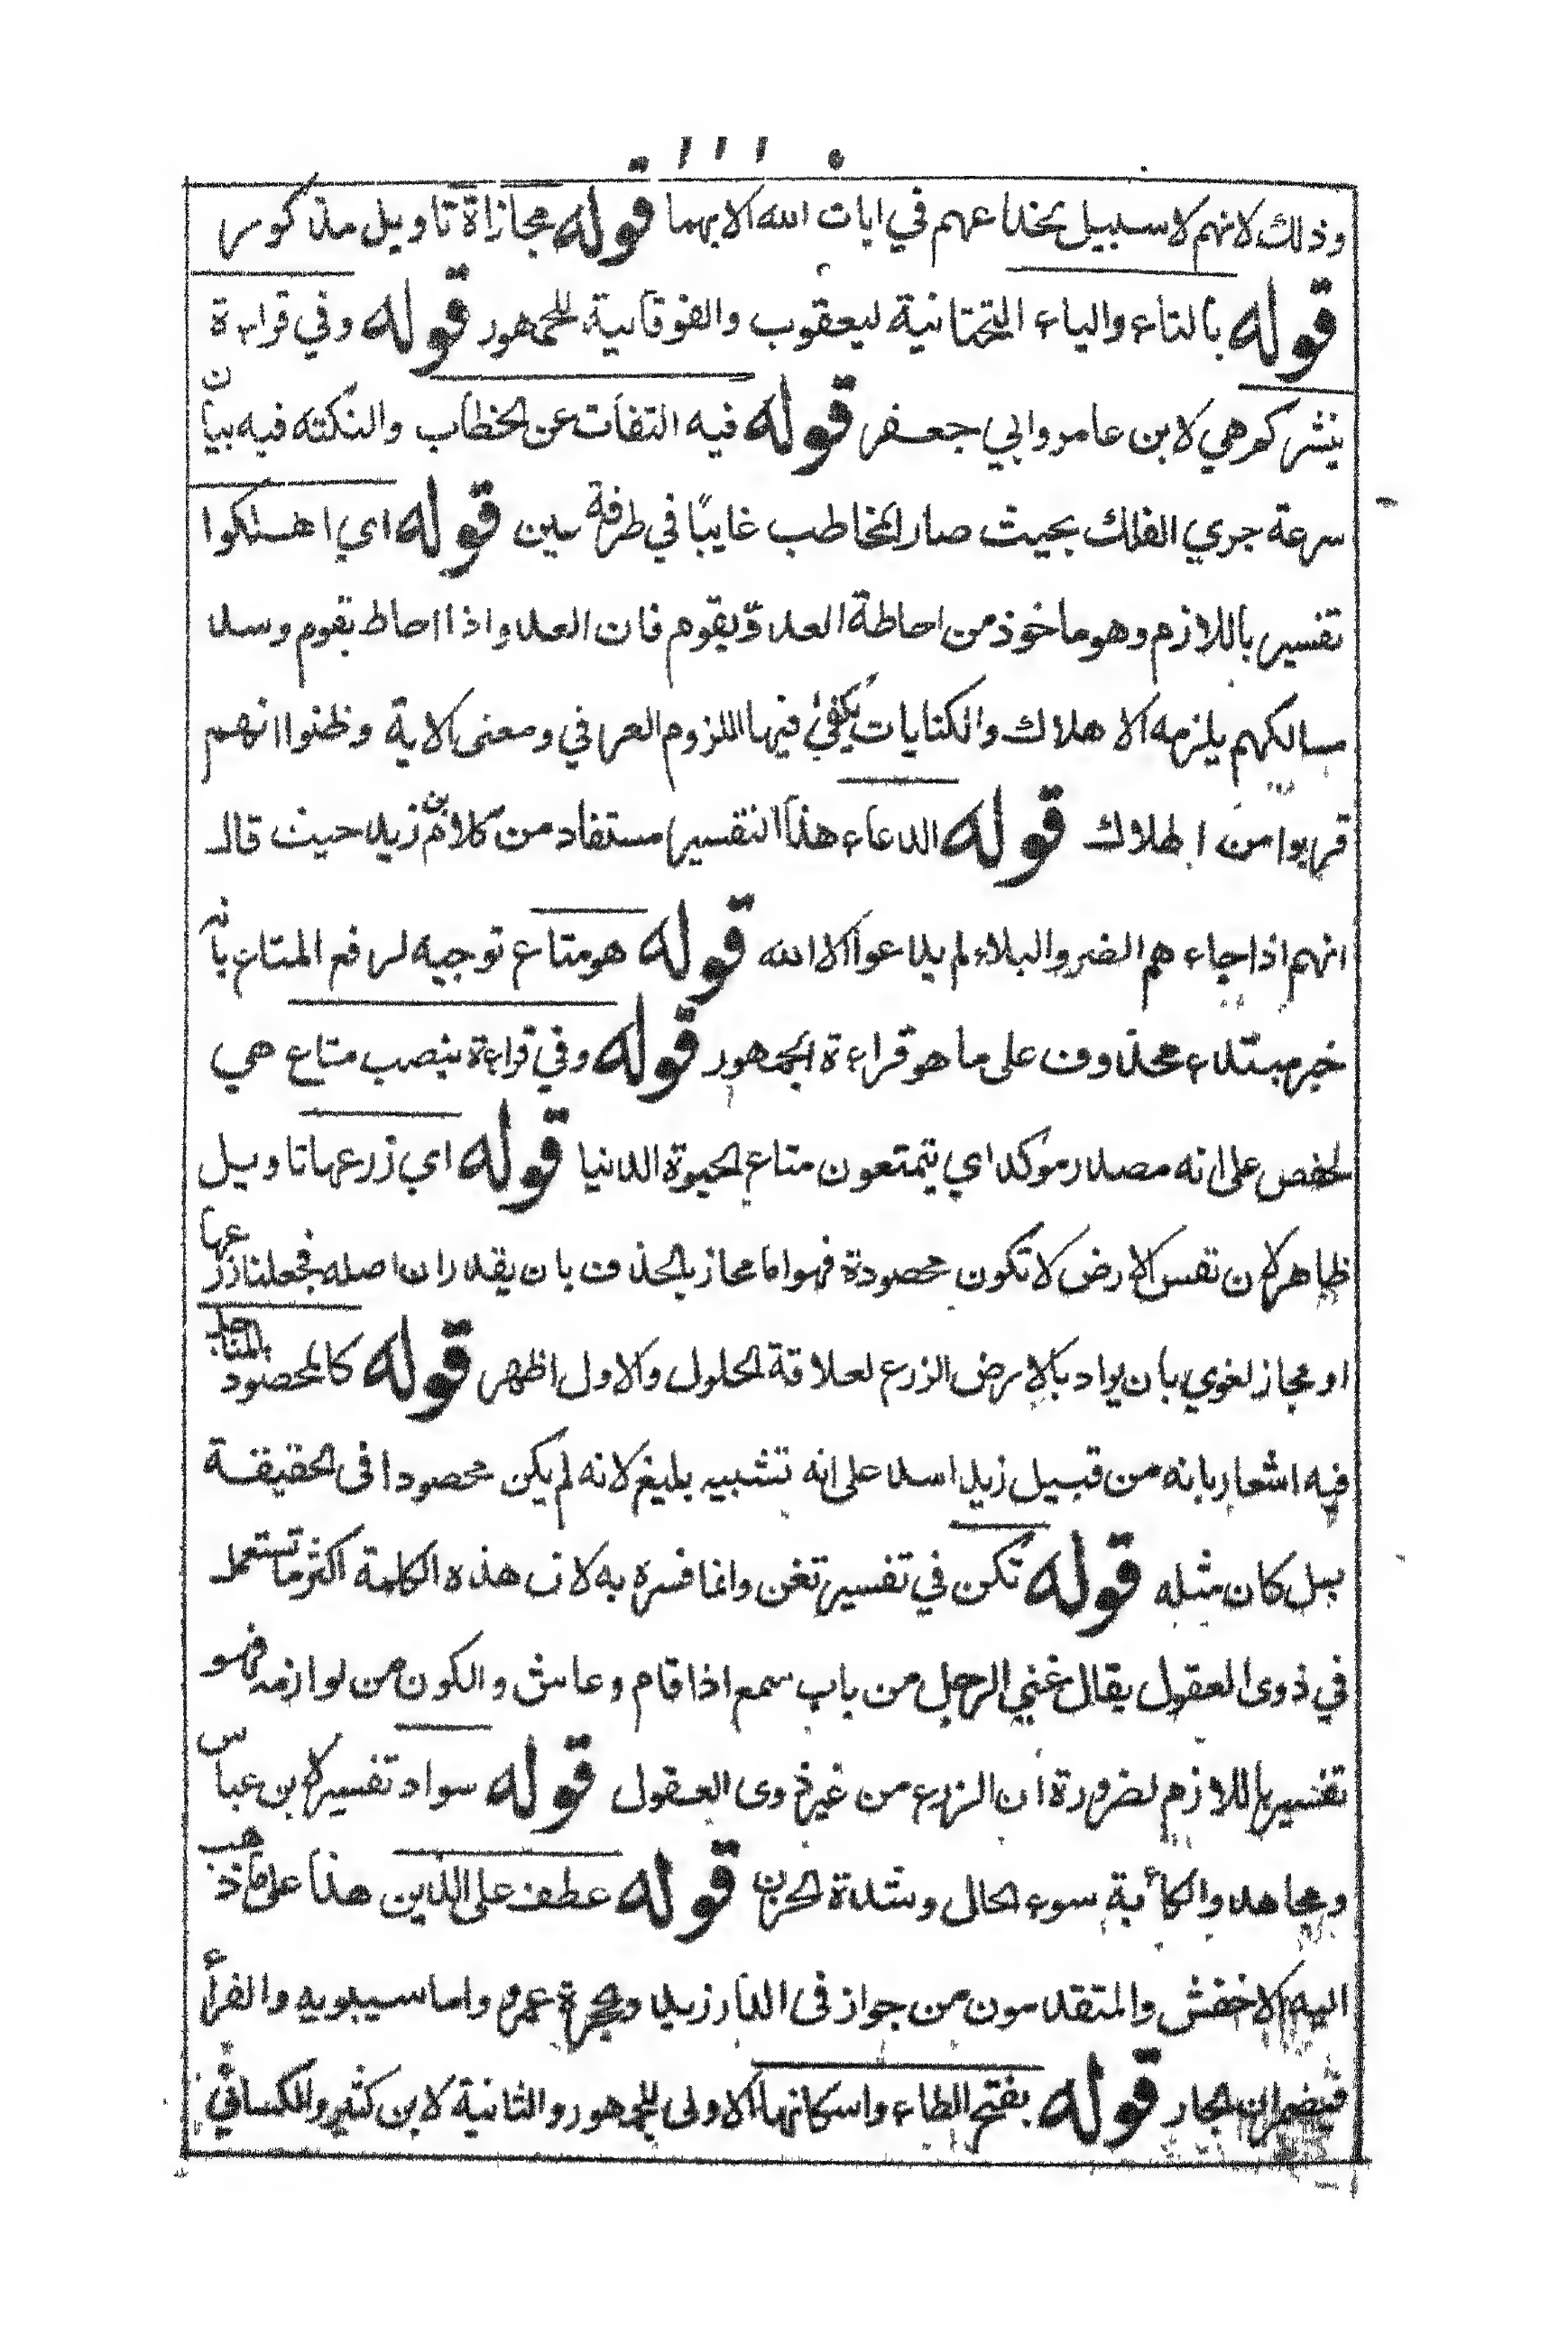 وذلك لانهم لا سبيل بخداعهم في ايات الله الا بهما قوله مجازاة تاويل مذكور
قوله بالتاء والياء التحتانية ليعقوب والفوقانية للجمهور قوله وفي قراءة
ينشركم هي لابن عامر وابي جعفر قوله فيه التفات عن الخطاب والنكتة فيه بيان
سرعة جري الفلك بحيث صار المخاطب غايبًا في طرفة عين قوله اي اهلكوا
تفسير باللازم وهو ماخوذ من احاطة العدوّ بقوم فان العدو اذا احاط بقوم وسد
سالكهم يلزمه الاهلاك والكنايات يكفي فيها اللزوم العرفي ومعنى الاية وظنوا انهم
قربوا من الهلاك قوله الدعاء هذا التفسير مستفاد من كلام بن زيد حيث قال
انهم اذا جاءهم الضر والبلاء لم يدعوا الا الله قوله هو متاع توجيه لرفع المتاع بانه
خبر مبتداء محذوف على ما هو قراءة الجمهور قوله وفي قراءة بنصب متاع هي
لحفص على انه مصدر موكد اي يتمتعون متاع الحيوة الدنيا قوله اي زرعها تاويل
ظاهر لان نفس الارض لا تكون محصودة فهو اما مجاز بالحذف بان يقدر ان اصله فجعلنا زرعها
او مجاز لغوي بان يراد بالارض الزرع لعلاقة الحلول والاول اظهر قوله كالمحصود بالمناجل
فيه اشعار بانه من قبيل زيد اسد على انه تشبيه بليغ لانه لم يكن محصودا فى الحقيقة
بل كان مثله قوله تكن في تفسير تغن وانما فسره به لان هذه الكلمة اكثر ما تستعمل
في ذوى العقول يقال غني الرجل من باب سمع اذا قام وعاش والكون من لوازمه فهو
تفسير باللازم لضرورة ان الزرع من غير ذوى العقول قوله سواد تفسير لابن عباس
ومجاهد والكأبة سوء الحال وشدة الحزن قوله عطف على الذين هذا على ما ذهب
اليه الاخفش والمتقدمون من جواز فى الدار زيد وحجرة عمرو واما سيبويه والفراء
فيضمران الجار قوله بفتح الطاء واسكانها الاولى للجمهور والثانية لابن كثير والكسائي